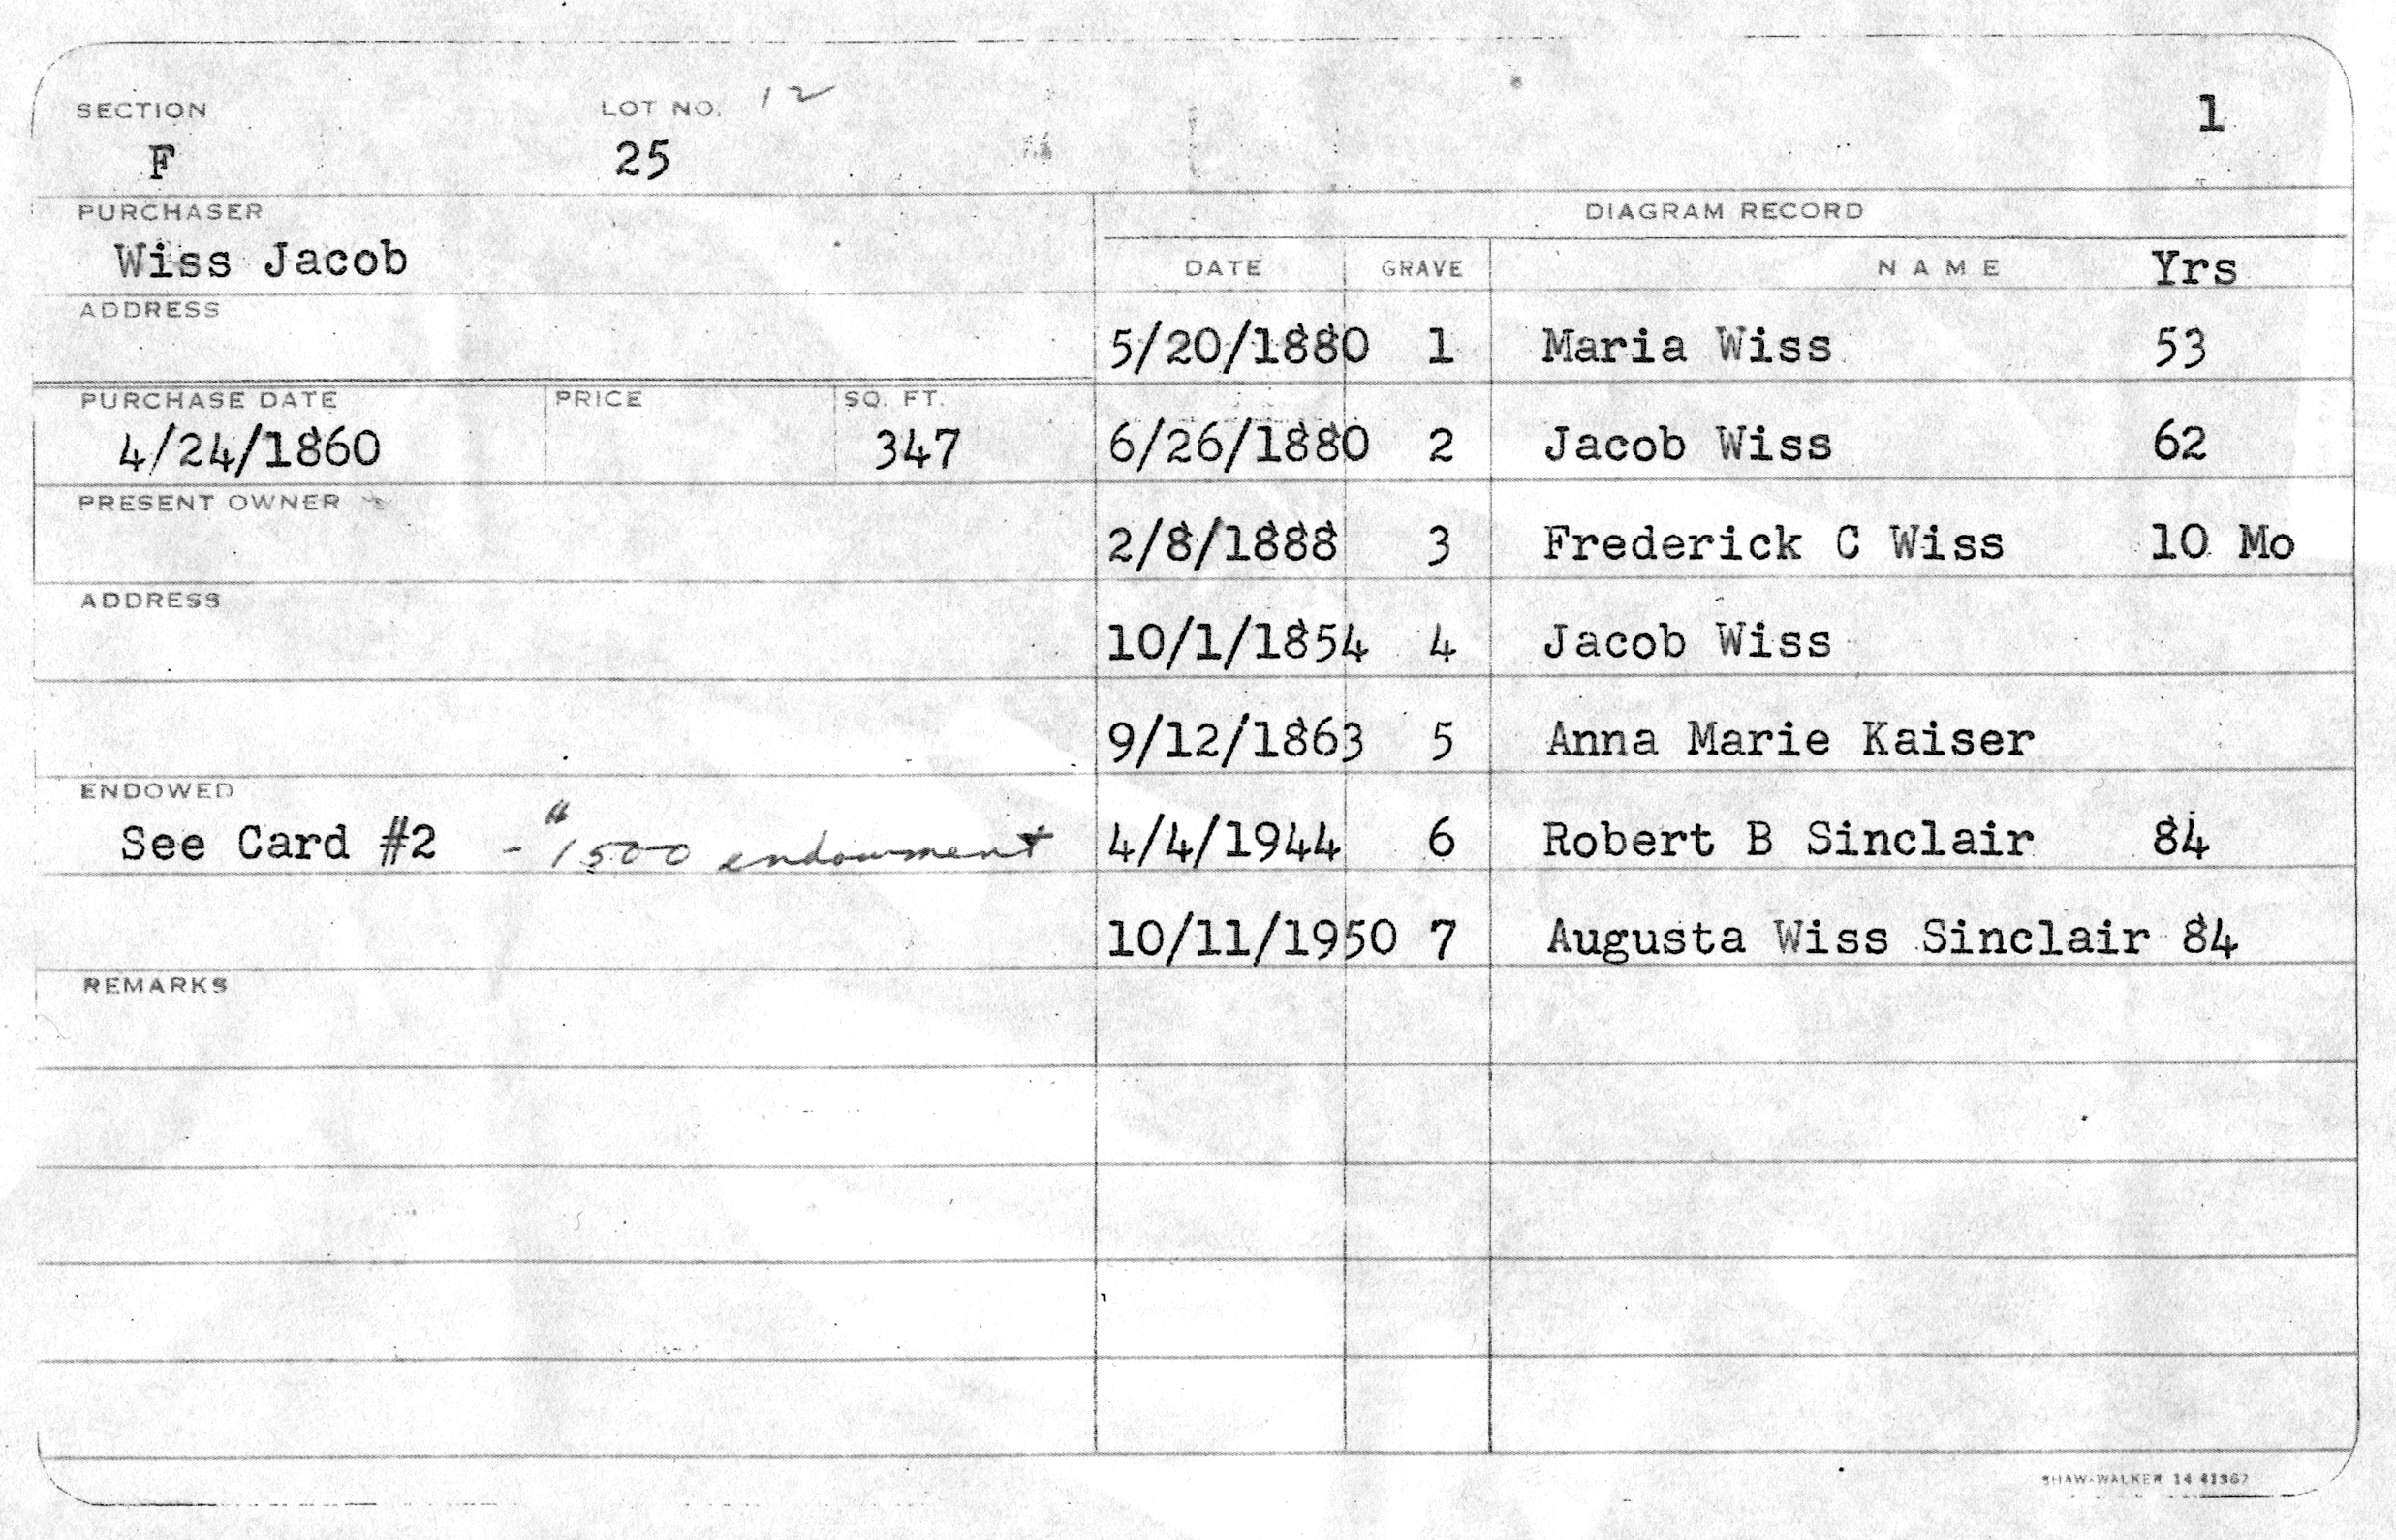 SECTION LOT NO. 12 1
F 25
PURCHASER DIAGRAM RECORD
Wiss Jacob
DATE GRAVE NAME Yrs
ADDRESS
5/20/1880 1 Maria Wiss 53
PURCHASE DATE PRICE SQ. FT.
4/24/1860 347 6/26/1880 2 Jacob Wiss 62
PRESENT OWNER
2/8/1888 3 Frederick C Wiss 10 Mo
ADDRESS
10/1/1854 4 Jacob Wiss
9/12/1863 5 Anna Marie Kaiser
ENDOWED
See Card #2 - 1500 endowment 4/4/1944 6 Robert B Sinclair 84
10/11/1950 7 Augusta Wiss Sinclair 84
REMARKS
SHAW-WALKER 14